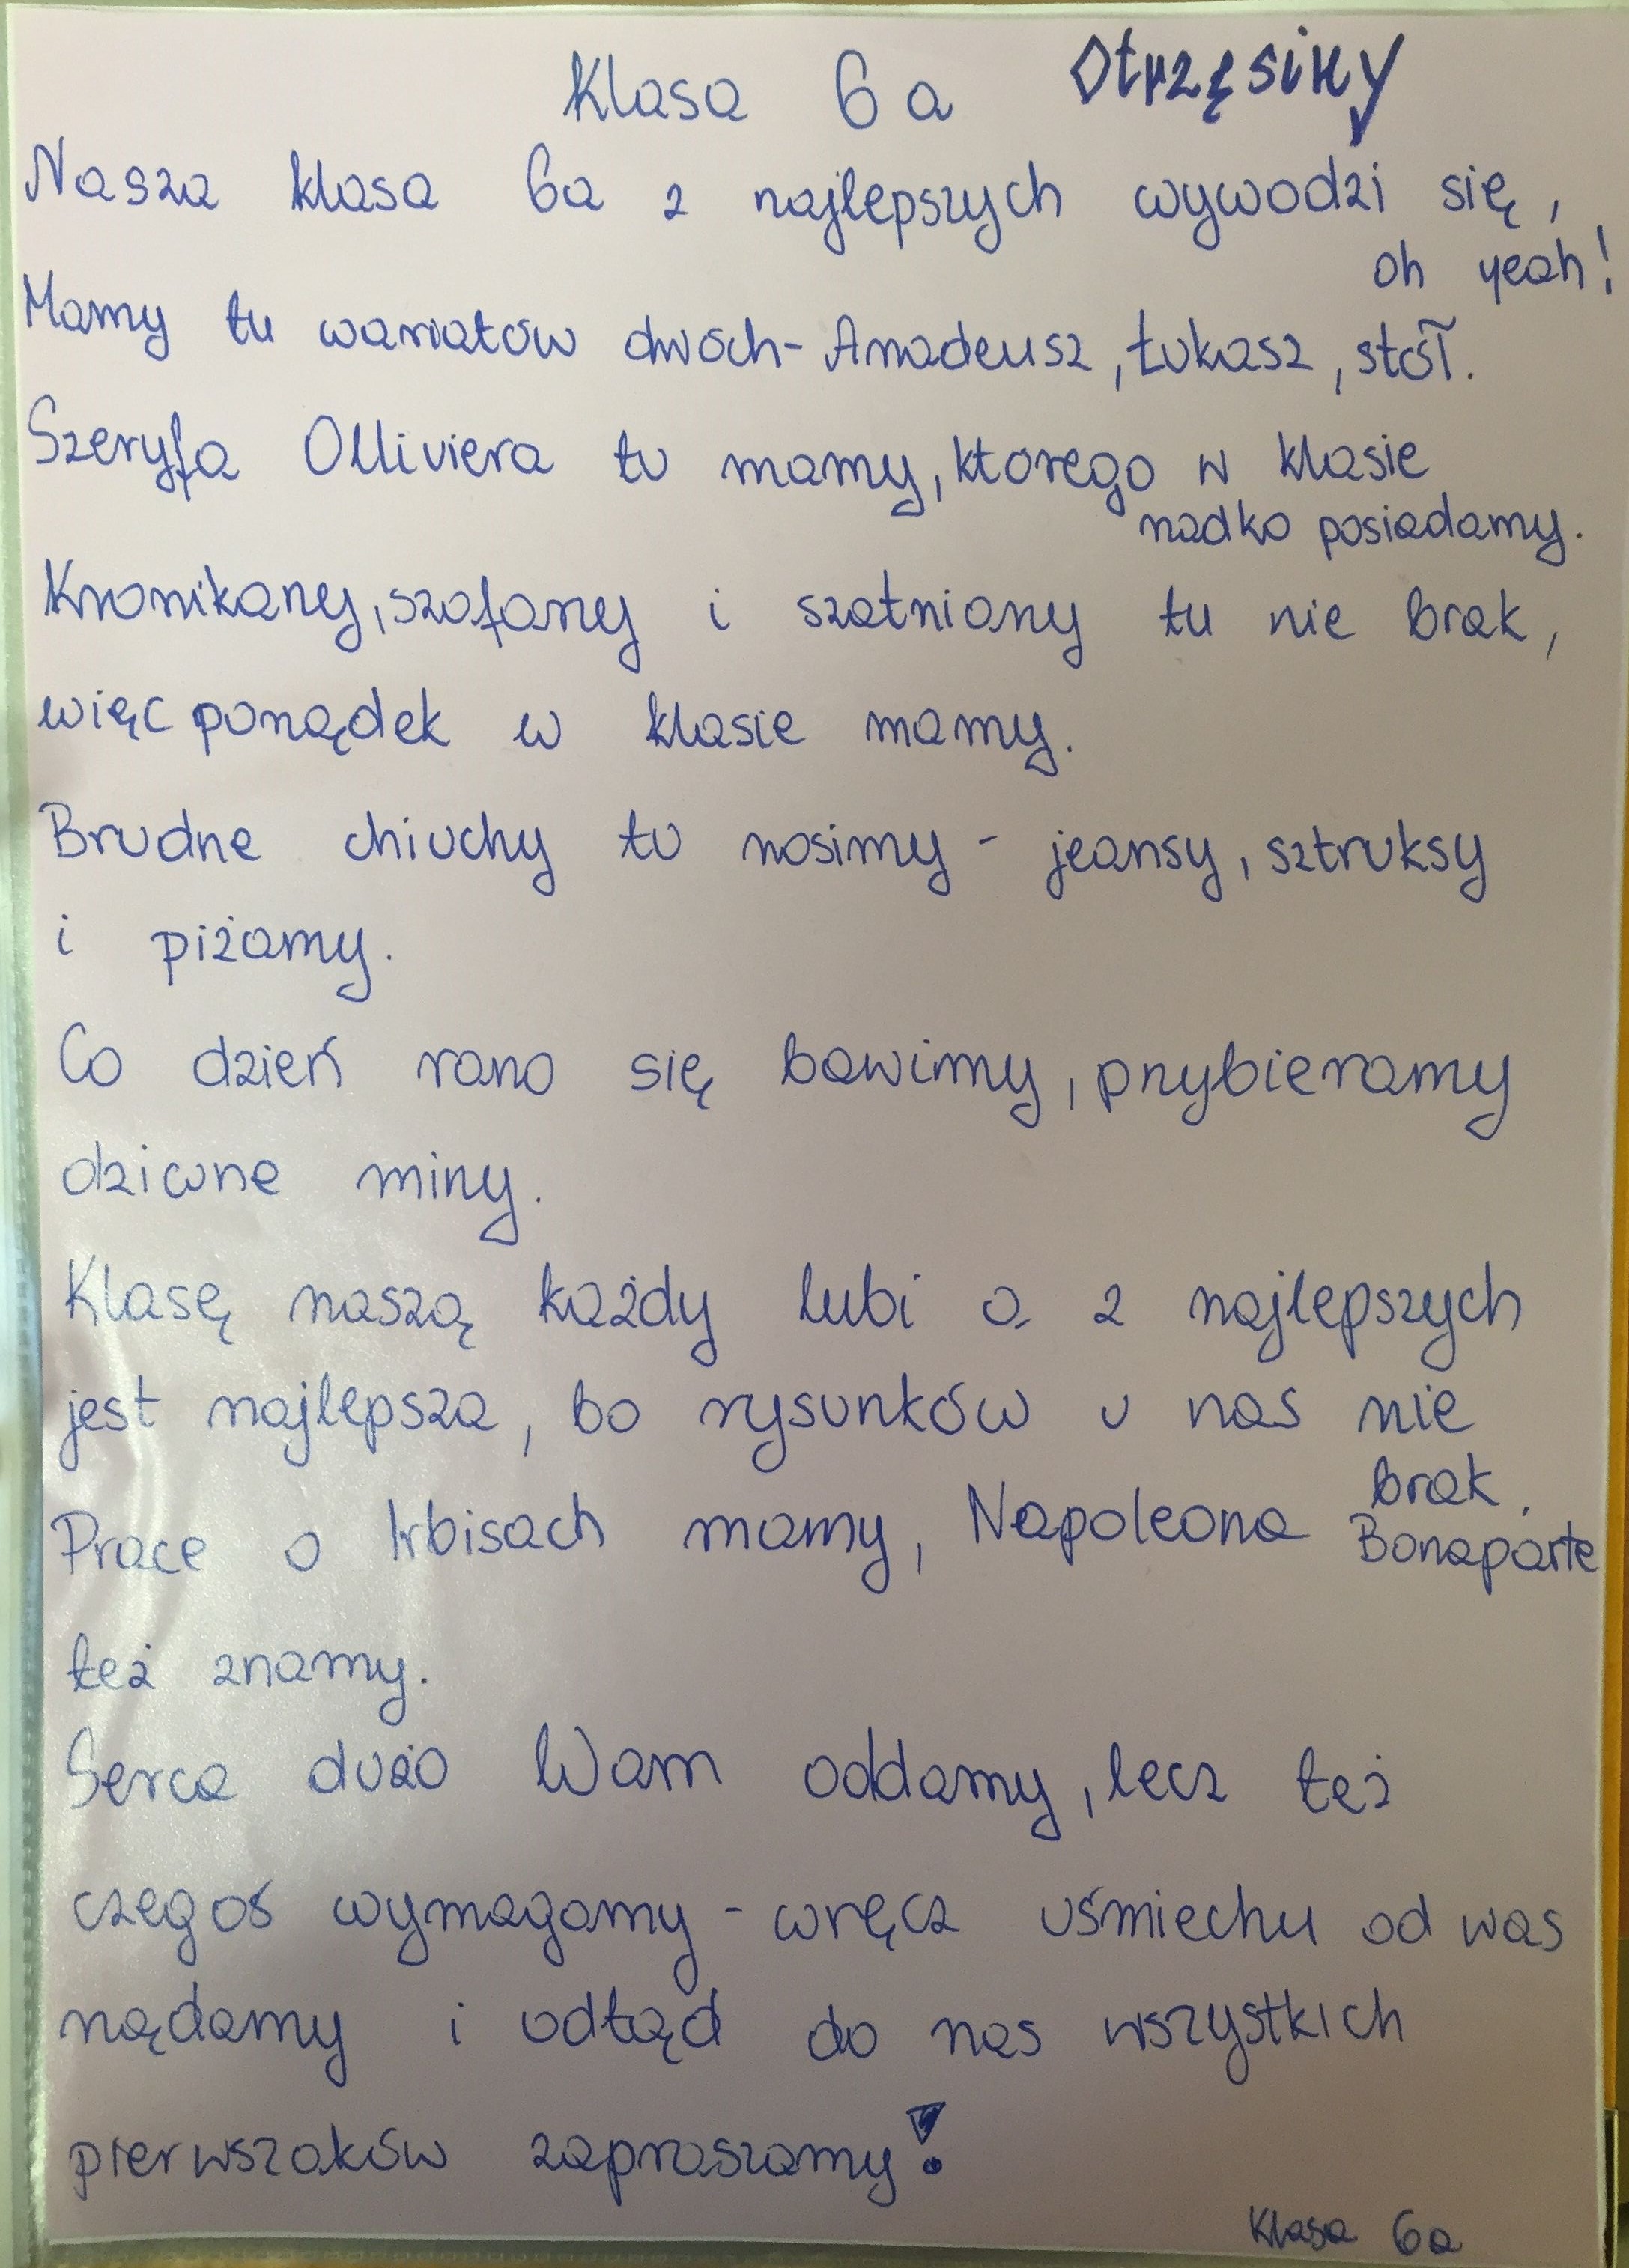 Klasa 6a Otrzęsiny
Nasza klasa 6a z najlepszych wywodzi się,
oh yeah!
Mamy tu wariatów dwóch - Amadeusz, Łukasz, stół.
Szeryfa Olliviera tu mamy, ktorego w klasie
rzadko posiadamy.
Kronikarzy, szafarzy i szatniarzy tu nie brak,
więc porządek w klasie mamy.
Brudne chiuchy tu nosimy - jeansy, sztruksy
i piżamy.
Co dzień rano się bawimy, przybieramy
dziwne miny.
Klasę naszą każdy lubi a z najlepszych
jest najlepsza, bo rysunków u nas nie
brak.
Prace o Irbisach mamy, Napoleona Bonaparte
też znamy.
Serca dużo Wam oddamy, lecz też
czegoś wymagamy - wręcz uśmiechu od was
rządamy i odtąd do nas wszystkich
pierwszaków zapraszamy!
Klasa 6a